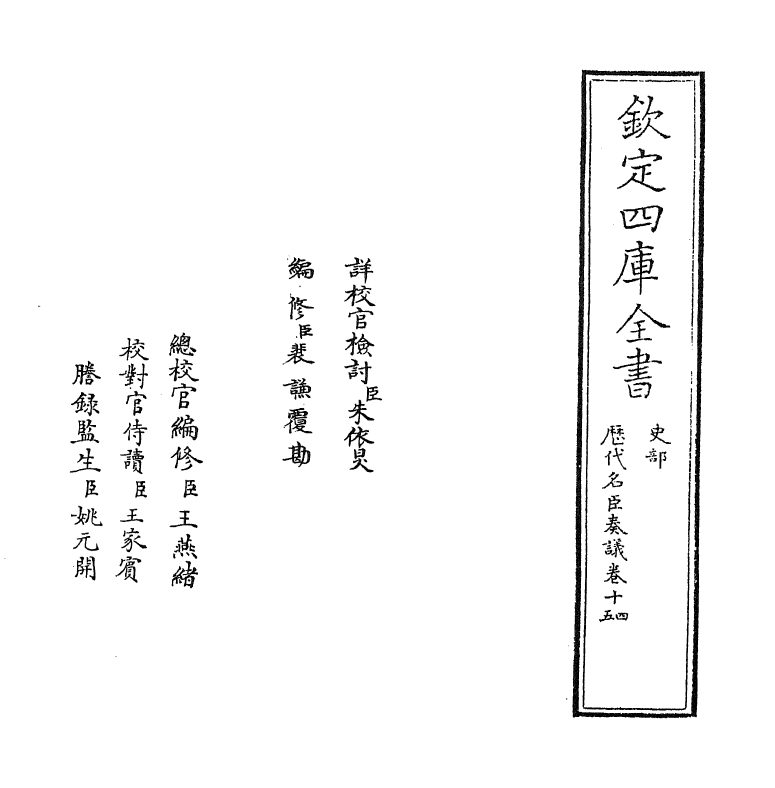 欽定四庫全書
史部
歷代名臣奏議卷十四五
詳校官檢討臣朱依炅
編修臣裴謙覆勘
總校官編修臣王燕緒
校對官侍讀臣王家賓
謄錄監生臣姚元開